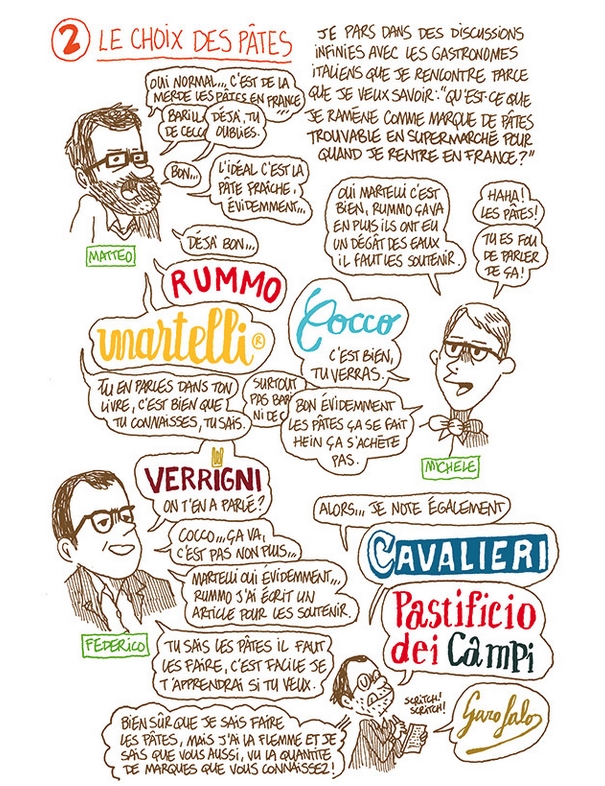 2 LE CHOIX DES PÂTES
JE PARS DANS DES DISCUSSIONS
INFINIES AVEC LES GASTRONOMES
ITALIENS QUE JE RENCONTRE PARCE
QUE JE VEUX SAVOIR : "QU'EST-CE QUE
JE RAMÈNE COMME MARQUE DE PÂTES
TROUVABLE EN SUPERMARCHÉ POUR
QUAND JE RENTRE EN FRANCE ?"
OUI NORMAL... C'EST DE LA
MERDE LES PÂTES EN FRANCE
BARILL
DE CECCO
DÉJÀ, TU
OUBLIES.
BON...
L'IDÉAL C'EST LA
PÂTE FRAÎCHE,
ÉVIDEMMENT...
MATTEO
DÉJÀ BON...
RUMMO
martelli®
TU EN PARLES DANS TON
LIVRE, C'EST BIEN QUE
TU CONNAISSES, TU SAIS.
SURTOUT
PAS BARI
NI DE C
OUI MARTELLI C'EST
BIEN, RUMMO ÇA VA
EN PLUS ILS ONT EU
UN DÉGÂT DES EAUX
IL FAUT LES SOUTENIR.
HAHA !
LES PÂTES !
TU ES FOU
DE PARLER
DE ÇA !
Cocco
C'EST BIEN,
TU VERRAS.
BON ÉVIDEMMENT
LES PÂTES ÇA SE FAIT
HEIN ÇA S'ACHÈTE
PAS.
MICHELE
VERRIGNI
ON T'EN A PARLÉ ?
COCCO... ÇA VA,
C'EST PAS NON PLUS...
MARTELLI OUI ÉVIDEMMENT...
RUMMO J'AI ÉCRIT UN
ARTICLE POUR LES SOUTENIR.
FEDERICO
TU SAIS LES PÂTES IL FAUT
LES FAIRE, C'EST FACILE JE
T'APPRENDRAI SI TU VEUX.
ALORS... JE NOTE ÉGALEMENT
CAVALIERI
Pastificio
dei Campi
SCRITCH !
SCRITCH !
Garofalo
BIEN SÛR QUE JE SAIS FAIRE
LES PÂTES, MAIS J'AI LA FLEMME ET JE
SAIS QUE VOUS AUSSI, VU LA QUANTITÉ
DE MARQUES QUE VOUS CONNAISSEZ !